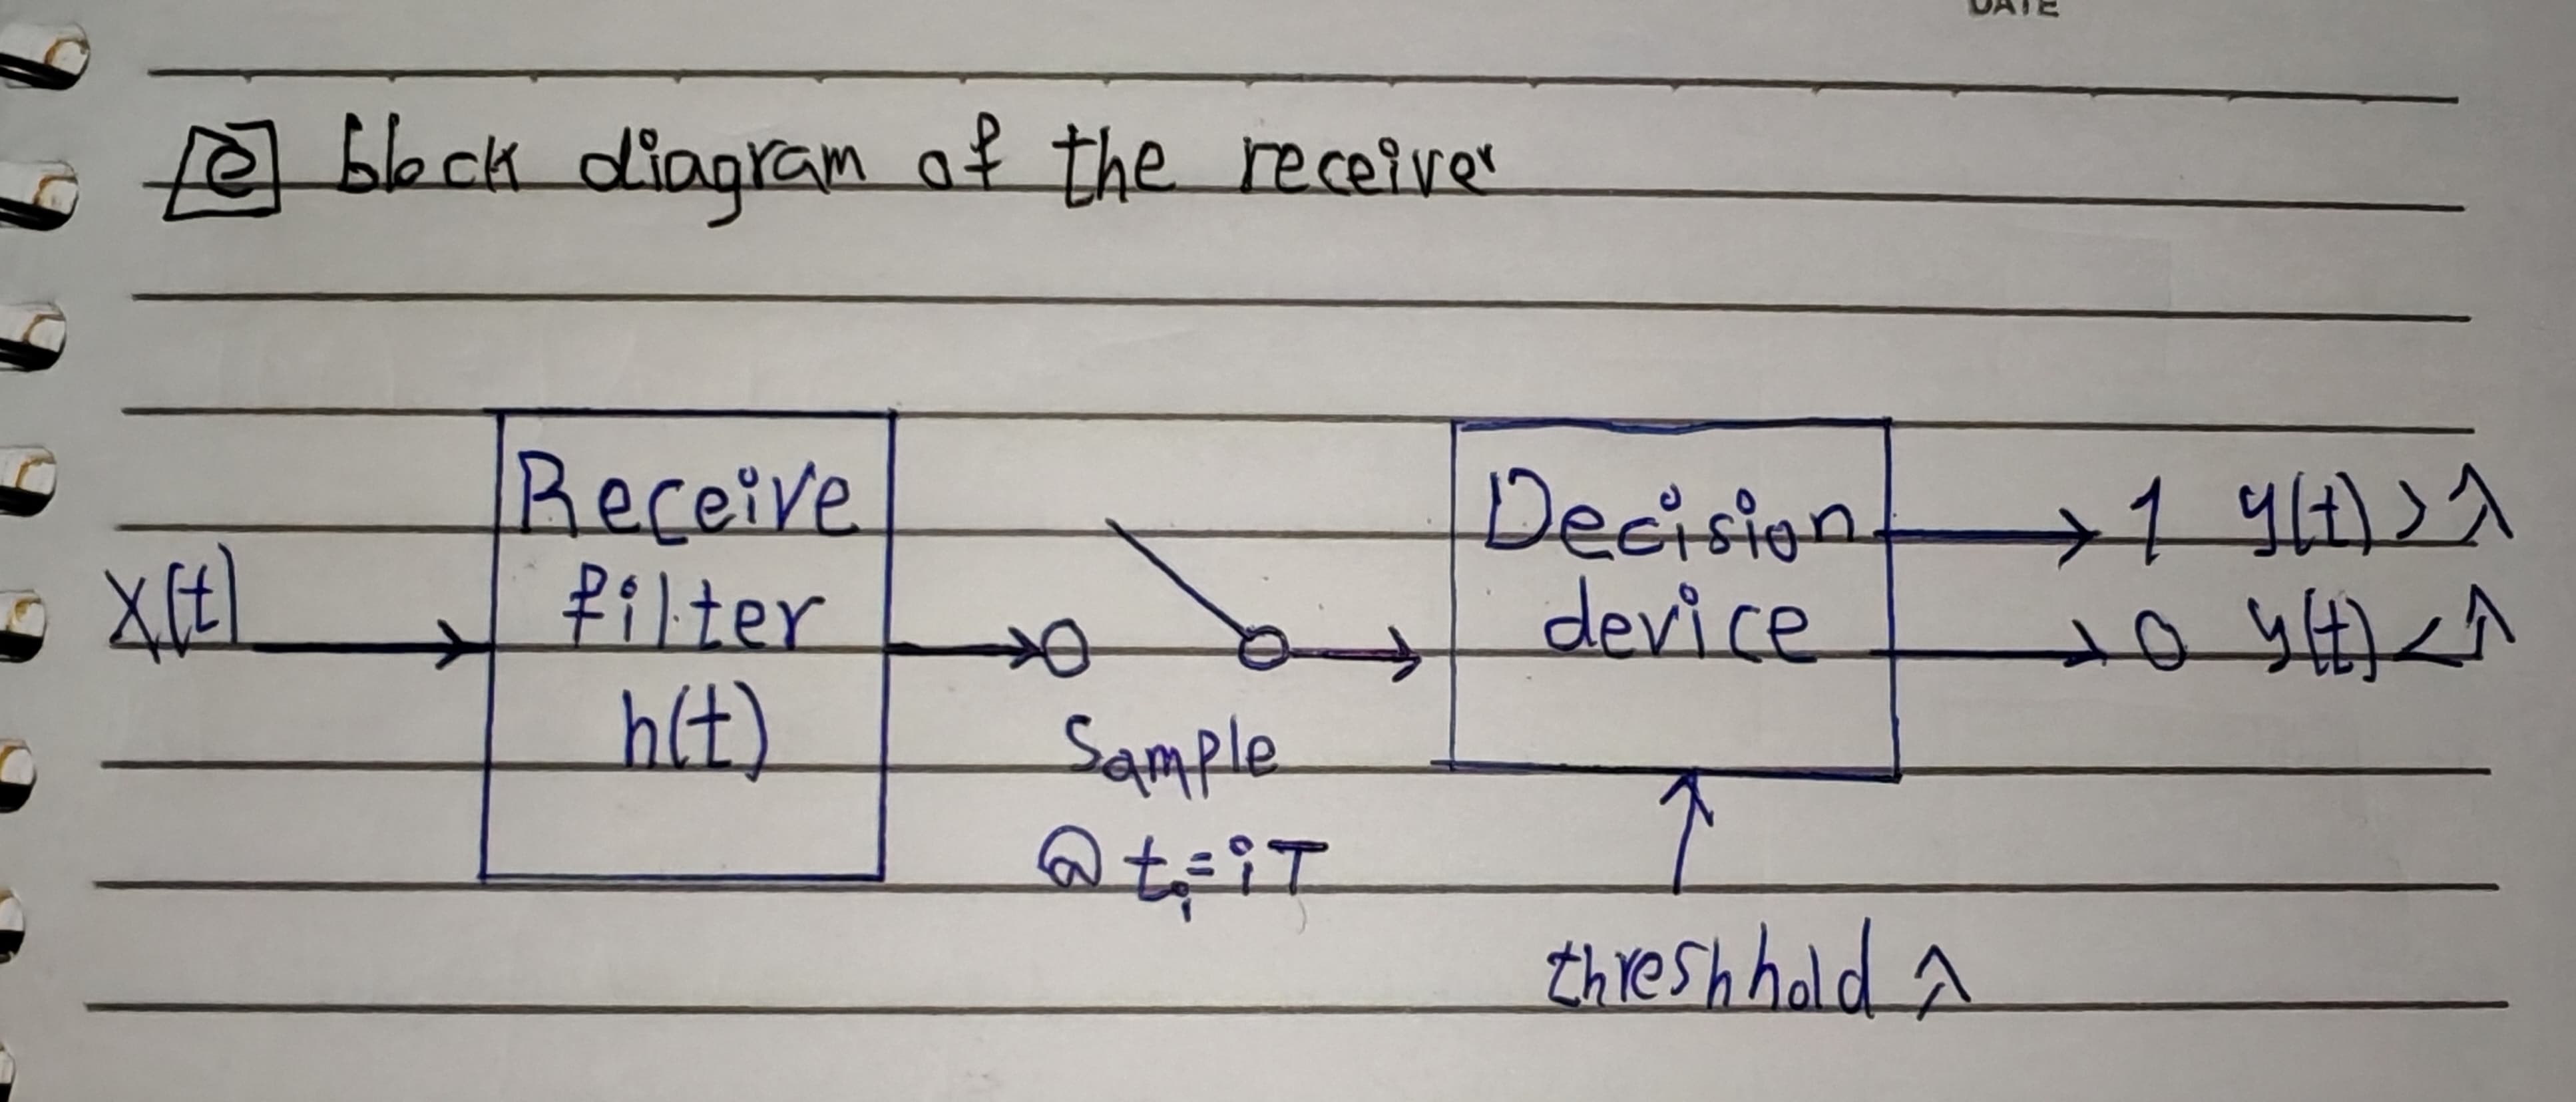 DATE
e block diagram of the receiver
X(t)
Receive
filter
h(t)
Sample
@ ti = iT
Decision
device
threshhold λ
1 y(t) > λ
0 y(t) < λ